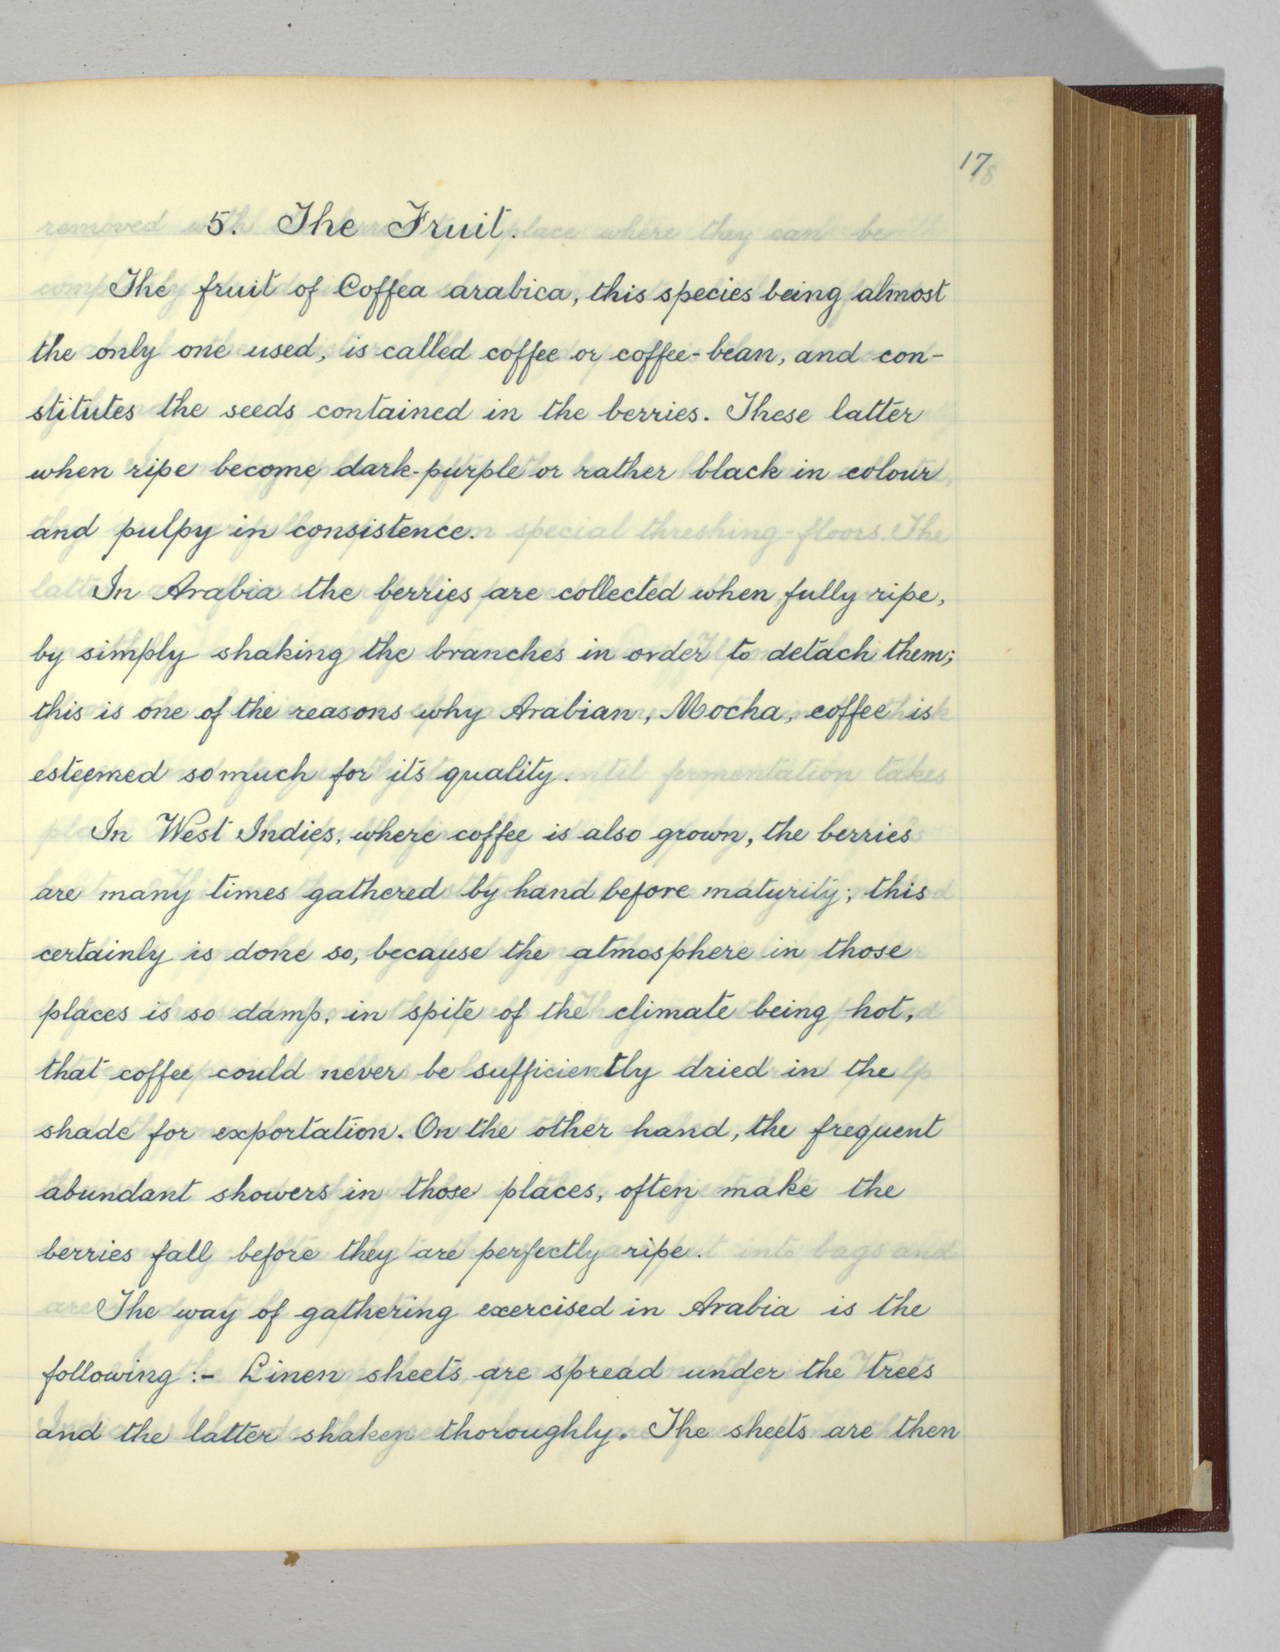 17
5. The Fruit.
The fruit of Coffea arabica, this species being almost
the only one used, is called coffee or coffee-bean, and con-
stitutes the seeds contained in the berries. These latter
when ripe become dark-purple or rather black in colour
and pulpy in consistence.
In Arabia the berries are collected when fully ripe,
by simply shaking the branches in order to detach them;
this is one of the reasons why Arabian, Mocha, coffee is
esteemed so much for its quality.
In West Indies, where coffee is also grown, the berries
are many times gathered by hand before maturity; this
certainly is done so, because the atmosphere in those
places is so damp, in spite of the climate being hot,
that coffee could never be sufficiently dried in the
shade for exportation. On the other hand, the frequent
abundant showers in those places, often make the
berries fall before they are perfectly ripe.
The way of gathering exercised in Arabia is the
following :- Linen sheets are spread under the trees
and the latter shaken thoroughly. The sheets are then